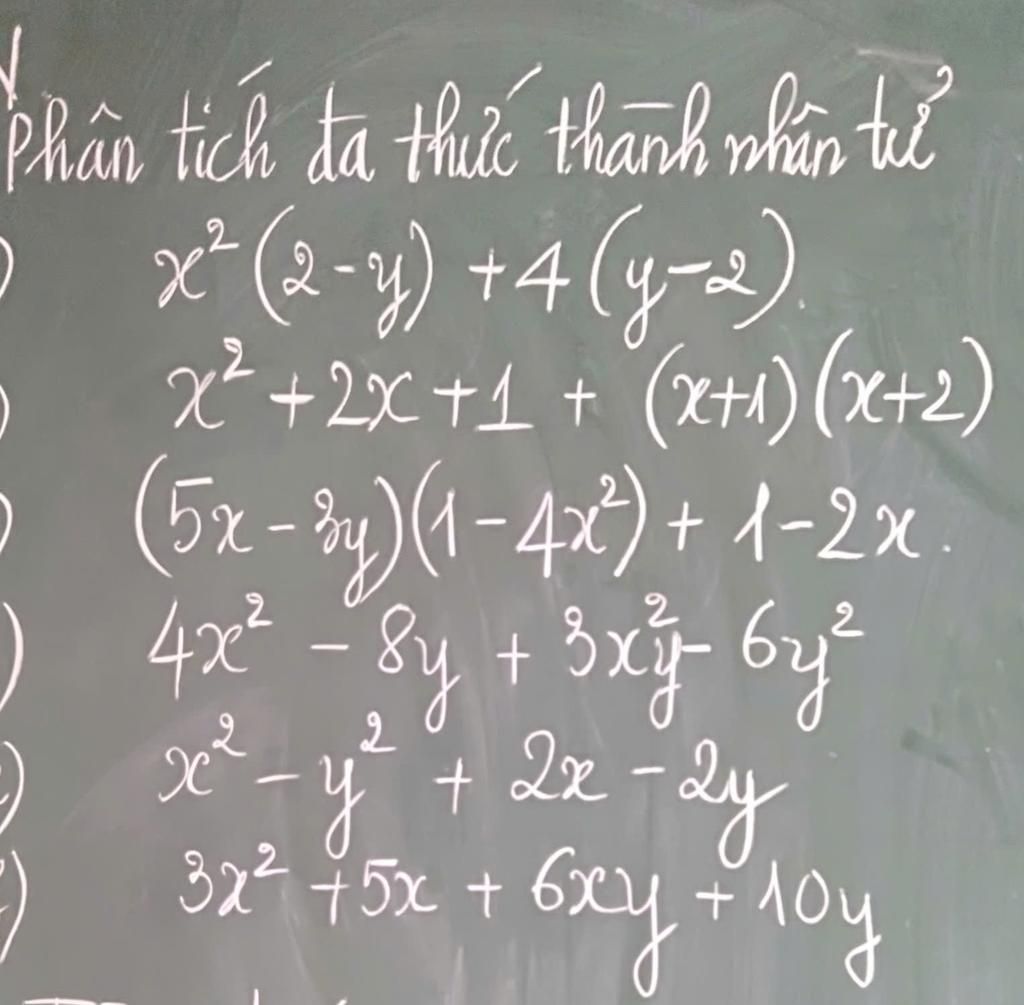 Phân tích đa thức thành nhân tử
) x² (2-y) + 4 (y-2).
) x² + 2x + 1 + (x+1)(x+2)
) (5x - 3y)(1 - 4x²) + 1 - 2x.
) 4x² - 8y + 3x²y - 6y²
) x² - y² + 2x - 2y
) 3x² + 5x + 6xy + 10y